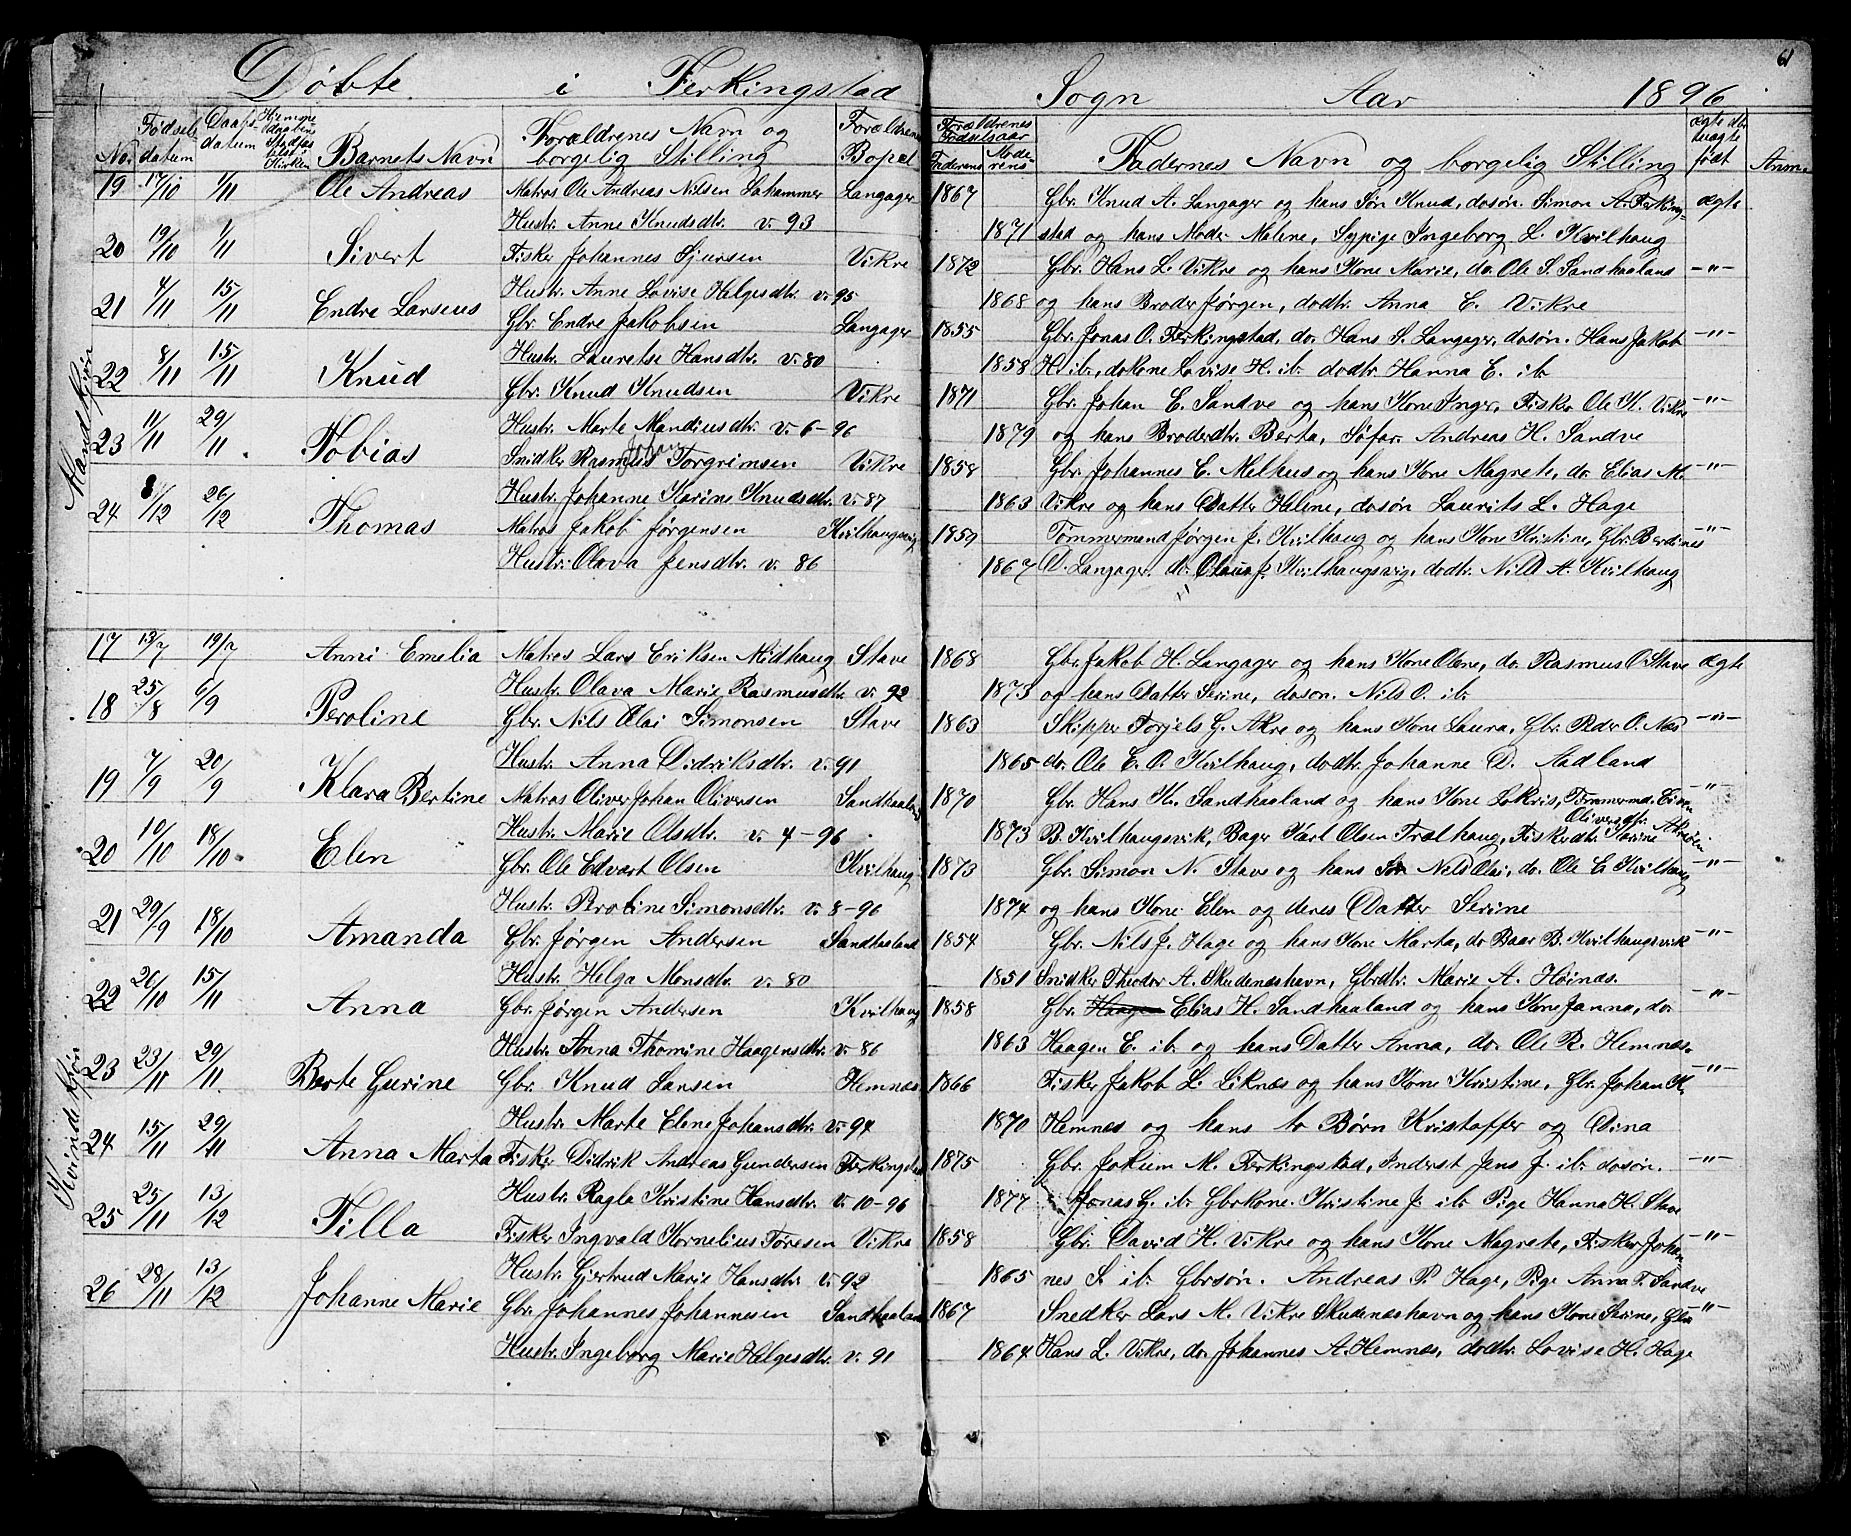 61
Døbte i Ferkingstad Sogn Aar 1896
No. Fødsels datum Daabs datum Barnets Navn Forældrenes Navn og borgelig Stilling Forældrenes Bopæl Forældrenes Fødselsaar Faderens Moderens Fadernes Navn og borgelig Stilling ægte el. uægte født Anm.
Mandkjøn
19 17/10 1/11 Ole Andreas Matros Ole Andreas Nilsen Langager 1867 Gbr. Knud A. Langager og hans Søn Knud, do søn. Simon A. Ferking- ægte
Hustr. Anne Knudsdtr. v. 93 1871 stad og hans Moder Malene, Sypige Ingeborg L. Kvilhaug
20 19/10 1/11 Sivert Fisker Johannes Sjursen Vikre 1872 Gbr. Hans L. Vikre og hans Kone Marie, do. Ole S. Sandhaaland -"-
Hustr. Anne Lovise Helgesdtr. v. 95 1868 og hans Broder Jørgen, do dtr. Anna E. Vikre
21 4/11 15/11 Endre Larseus Gbr. Endre Jakobsen Langager 1855 Gbr. Jonas O. Ferkingstad, do. Hans S. Langager, do søn. Hans Jakob -"-
Hustr. Lauretse Hansdtr. v. 80 1858 H. ib., do kone Lovise H. ib. do dtr. Hanna E. ib.
22 8/11 15/11 Knud Gbr. Knud Knudsen Vikre 1871 Gbr. Johan E. Sandve og hans Kone Inger, Fisker Ole K. Vikre -"-
Hustr. Marte Mandiusdtr. v. 6-96 1879 og hans Broderdtr. Berta, Søfar. Andreas H. Sandve
23 11/11 29/11 Tobias Snidker Rasmus Johan Torgrimsen Vikre 1858 Gbr. Johannes E. Melhus og hans Kone Magrete, do. Elias M. -"-
Hustr. Johanne Karine Knudsdtr. v. 87 1863 Vikre og hans Datter Helene, do søn Laurits L. Hage
24 8/12 26/12 Thomas Matros Jakob Jørgensen Kvilhaugsvig 1859 Tømmermand Jørgen J. Kvilhaug og hans Kone Kristine, Gbr. Berdines -"-
Hustr. Olava Jensdtr. v. 86 1867 D. Langager. do. Olaus J. Kvilhaugsvig, do dtr. A. Kvilhaug
Kvindekjøn
17 13/7 19/7 Anni Emelia Matros Lars Eriksen Midhaug Stave 1868 Gbr. Jakob H. Langager og hans Kone Olene, do. Rasmus O. Stave ægte
Hustr. Olava Marie Rasmusdtr. v. 92 1873 og hans Datter Serine, do søn. Nils O. ib.
18 25/8 6/9 Peroline Gbr. Nils Olai Simonsen Stave 1863 Skipper Torjels G. Akre og hans Kone Laura, Gbr. Peder O. Næs -"-
Hustr. Anna Didriksdtr. v. 91 1865 do. Ole E. O. Kvilhaug, do dtr. Johanne D. Aadland
19 7/9 20/9 Klara Bertine Matros Oliver Johan Oliversen Sandhaaland 1870 Gbr. Hans Kn. Sandhaaland og hans Kone Lokris, Tømmermd. -"-
Hustr. Marie Olsdtr. v. 4-96 1873 B. Kvilhaugsvik, Bager Karl Olsen Trælhaug, Fiskerdtr. Karine Oliversdtr.
20 10/10 18/10 Elen Gbr. Ole Edvart Olsen Kvilhaug 1873 Gbr. Simon N. Stave og hans Søn Nils Olai, do. Ole E. Kvilhaug -"-
Hustr. Peroline Simonsdtr. v. 8-96 1874 og hans Kone Elen og deres Datter Serine
21 29/9 18/10 Amanda Gbr. Jørgen Andersen Sandhaaland 1854 Gbr. Nils J. Hage og hans Kone Marta, do Baar B. Kvilhaugsvik -"-
Hustr. Helga Monsdtr. v. 80 1851 Snidker Theodor A. Skudeneshavn, Gbrdtr. Marie A. Høines.
22 26/10 15/11 Anna Gbr. Jørgen Andersen Kvilhaug 1858 Gbr. Haagen Elias H. Sandhaaland og hans Kone Janna, do. -"-
Hustr. Anna Thomine Haagensdtr. v. 86 1863 Haagen E. ib. og hans Datter Anna, do. Ole R. Hemnes.
23 23/11 29/11 Berte Gurine Gbr. Knud Larsen Hemnes 1866 Fisker Jakob L. Liknes og hans Kone Kristine, Gbr. Johan K. -"-
Hustr. Marte Elene Johansdtr. v. 94 1870 Hemnes og hans to Børn Kristoffer og Dina
24 15/11 29/11 Anna Marta Fisker Didrik Andreas Gundersen Ferkingstad 1875 Gbr. Jokum M. Ferkingstad, Inderst Jens J. ib. do søn. -"-
Hustr. Ragla Kristine Hansdtr. v. 10-96 1877 Jonas G. ib. Gbrkone. Kristine J. ib. Pige Hanna H. Stave
25 25/11 13/12 Tilla Fisker Ingvald Kornelius Tøresen Vikre 1858 Gbr. David H. Vikre og hans Kone Magrete, Fisker Johan -"-
Hustr. Gjertrud Marie Hansdtr. v. 92 1865 nes S. ib. Gbrsøn. Andreas P. Hage, Pige Anna T. Sandve
26 28/11 13/12 Johanne Marie Gbr. Johannes Johannesen Sandhaaland 1867 Snedker Lars M. Vikre Skudeneshavn og hans Kone Serine, Gbr. -"-
Hustr. Ingeborg Marie Helgesdtr. v. 91 1864 Hans L. Vikre, do. Johannes A. Hemnes, do dtr. Lovise H. Hage